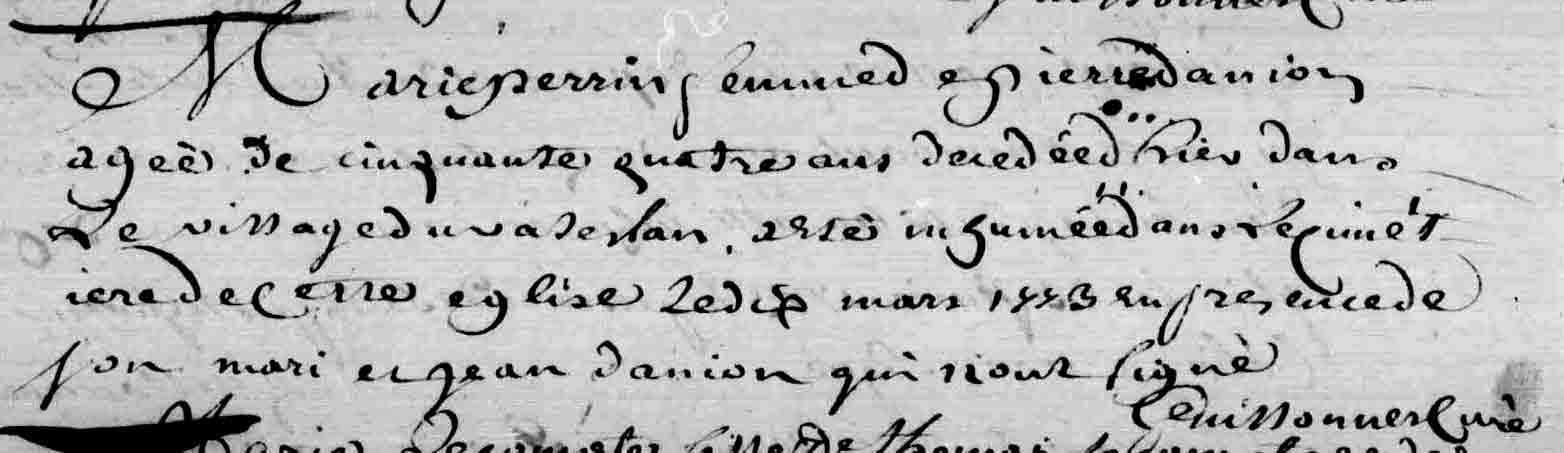 Marie perrin femme de pierre danion
ageé de cinquante quatre ans decedéé hier dans
Le village du valeslan, a esté inhuméé dans le cimét
iere de cette eglise Le dix mars 1773 en presence de
son mari et jean danion qui n'ont signé
Curé
Marie